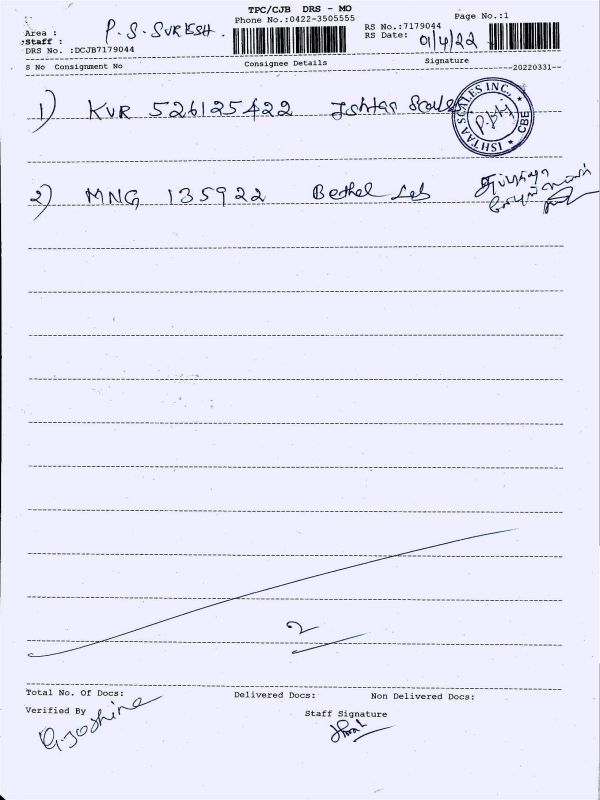 TPC/CJB DRS - MO
Phone No.:0422-3505555
Page No.:1
Area :
Staff : P. S. SURESH.
DRS No. :DCJB7179044
RS No.:7179044
RS Date: 01/4/22
S No Consignment No Consignee Details Signature
--20220331--
1) KVR 526125422 Ishtaa Scales
ISHTAA SCALES INC. ★ CBE ★
2) MNG 135922 Bethel Lab
2
Total No. Of Docs: Delivered Docs: Non Delivered Docs:
Verified By
Staff Signature
G. Joshine